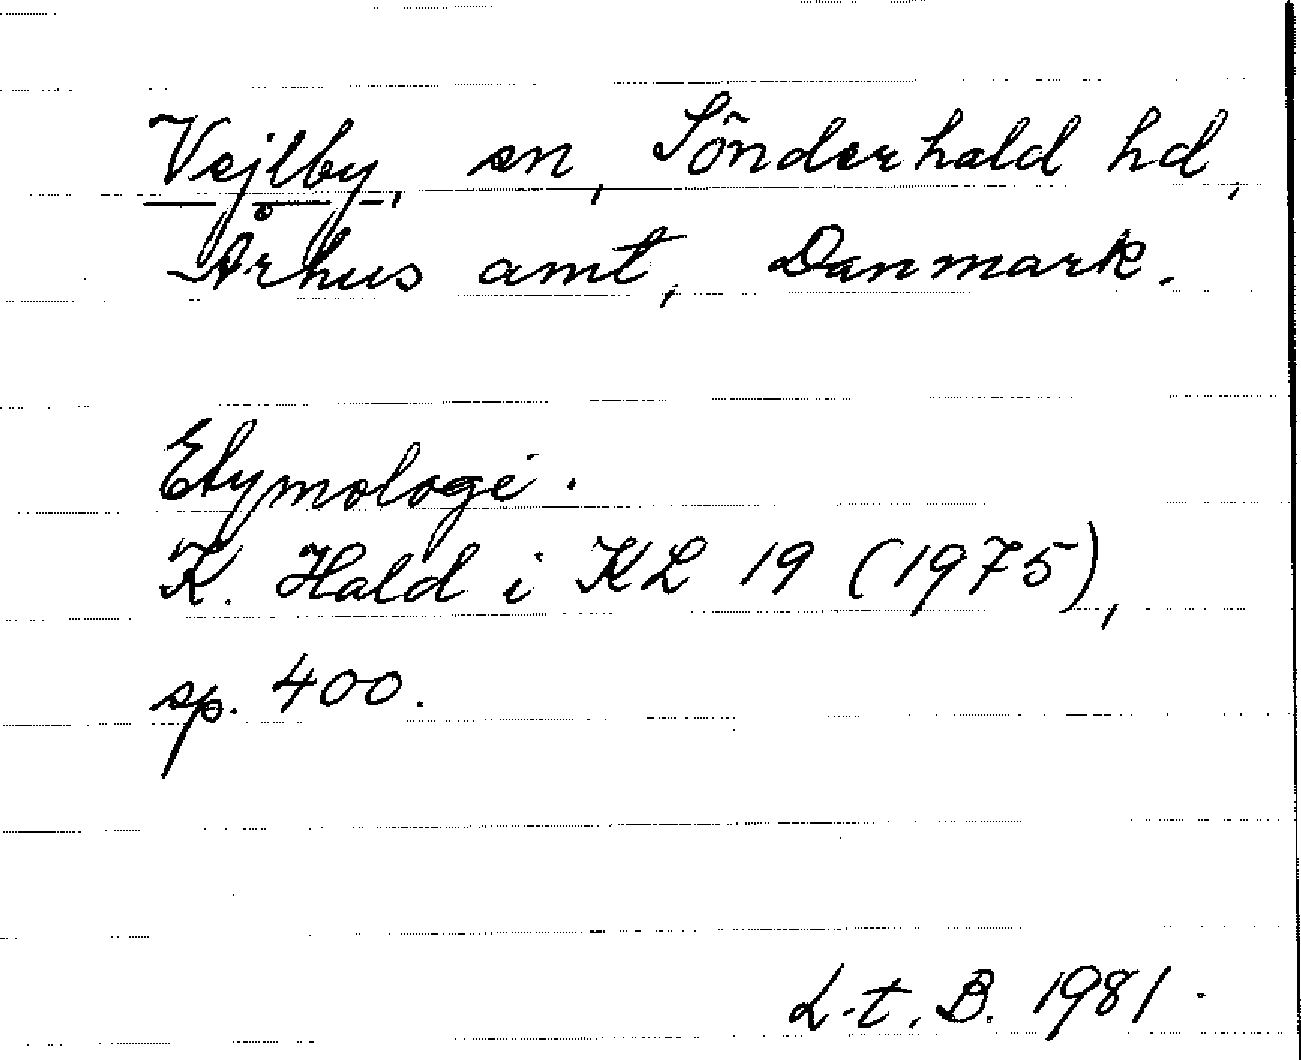 Vejlby, sn, Sönderhald hd,
Århus amt, Danmark.
Etymologi.
K. Hald i KL 19 (1975),
sp. 400.
L.t.B. 1981.